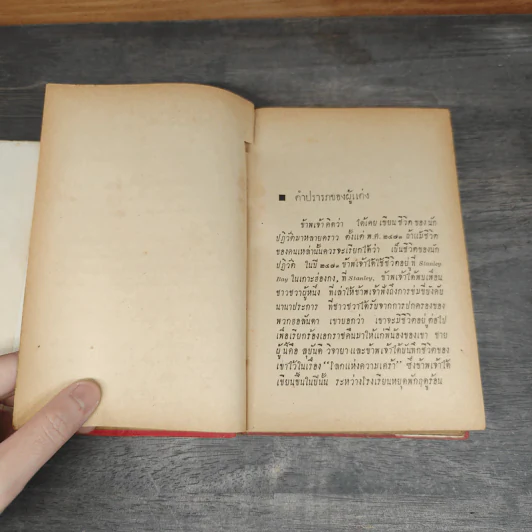 ■ คำปรารภของผู้แต่ง
ข้าพเจ้าคิดว่า ได้เคยเขียนชีวิตของนัก
ปฏิวัติมาหลายคราว ตั้งแต่ พ.ศ. ๒๔๗๑ ถ้าแม้ชีวิต
ของคนเหล่านั้นควรจะเรียกได้ว่า เป็นชีวิตของนัก
ปฏิวัติ ในปี ๒๔๗๑ ข้าพเจ้าได้ใช้ชีวิตอยู่ที่ Stanley
Bay ในเกาะฮ่องกง, ที่ Stanley, ข้าพเจ้าได้พบเพื่อน
ชาวชวาผู้หนึ่ง ที่เล่าให้ข้าพเจ้าฟังถึงการข่มขี่บังคับ
นานาประการ ที่ชาวชวาได้รับจากการปกครองของ
พวกฮอลันดา เขาบอกว่า เขาจะมีชีวิตอยู่ต่อไป
เพื่อเรียกร้องเอกราชคืนมาให้แก่พี่น้องของเขา ชาย
ผู้นี้คือ วิจายา และข้าพเจ้าได้บันทึกชีวิตของ
เขาไว้ในเรื่อง "โลกแห่งความเศร้า" ซึ่งข้าพเจ้าได้
เขียนขึ้นในปีนั้น ระหว่างโรงเรียนหยุดพักฤดูร้อน